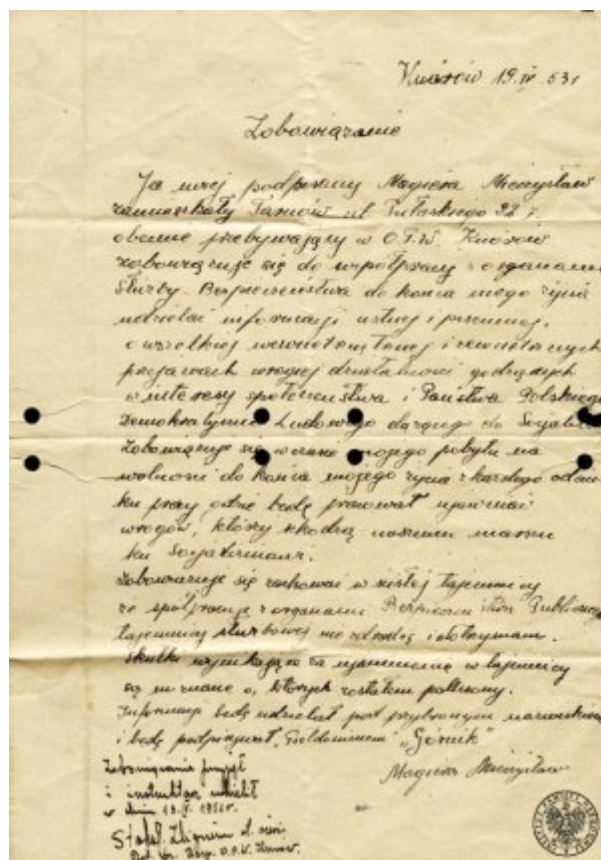 Knurów 19.IV 53r
Zobowiązanie
Ja niżej podpisany Magiera Mieczysław
zamieszkały Tarnów ul. Pułaskiego 92
obecnie przebywający w O.P.W. Knurów
zobowiązuje się do współpracy z organami
Służby Bezpieczeństwa do końca mego życia
udzielać informacji ustnej i pisemnej,
o wszelkiej wewnętrznej i zewnętrznych
przejawach wrogiej działalności godzących
w interesy społeczeństwa i Państwa Polskiego
Demokratyczno Ludowego dążącego do Socjalizmu
Zobowiązuje się w czasie mojego pobytu na
wolności do końca mojego życia z każdego odcin-
ku pracy gdzie będę pracował ujawniać
wrogów, którzy szkodzą naszemu marszu
ku Socjalizmowi.
Zobowiązuje się zachować w ścisłej tajemnicy
że spółpracuje z organami Bezpieczeństwa Publicznego
tajemnicy służbowej nie zdradzę i dotrzymam.
Skutki wynikające za ujawnienie w tajemnicy
są mi znane o, których zostałem pouczony.
Informacje będę udzielał pod przybranym nazwiskiem
i będę podpisywał, "Górnik"
Magiera Mieczysław
Zobowiązanie przyjął
i instruktarz udzielił
w dniu 19.IV.1953r.
Zbigniew
O.P.W. Knurów